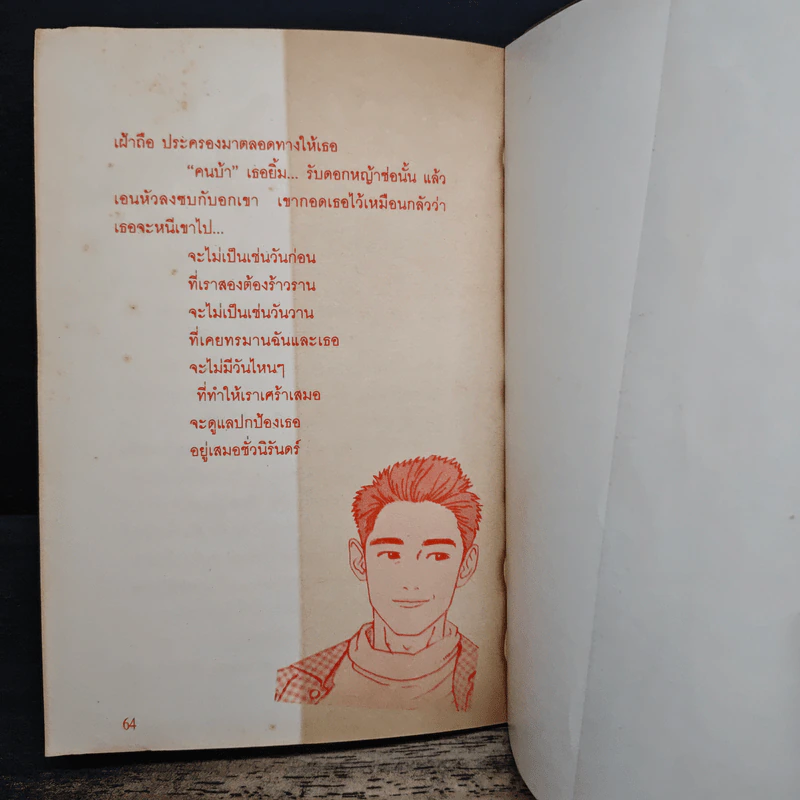 เฝ้าถือ ประครองมาตลอดทางให้เธอ
“คนบ้า” เธอยิ้ม... รับดอกหญ้าช่อนั้น แล้ว
เอนหัวลงซบกับอกเขา เขากอดเธอไว้เหมือนกลัวว่า
เธอจะหนีเขาไป...
จะไม่เป็นเช่นวันก่อน
ที่เราสองต้องร้าวราน
จะไม่เป็นเช่นวันวาน
ที่เคยทรมานฉันและเธอ
จะไม่มีวันไหนๆ
ที่ทำให้เราเศร้าเสมอ
จะดูแลปกป้องเธอ
อยู่เสมอชั่วนิรันดร์
64